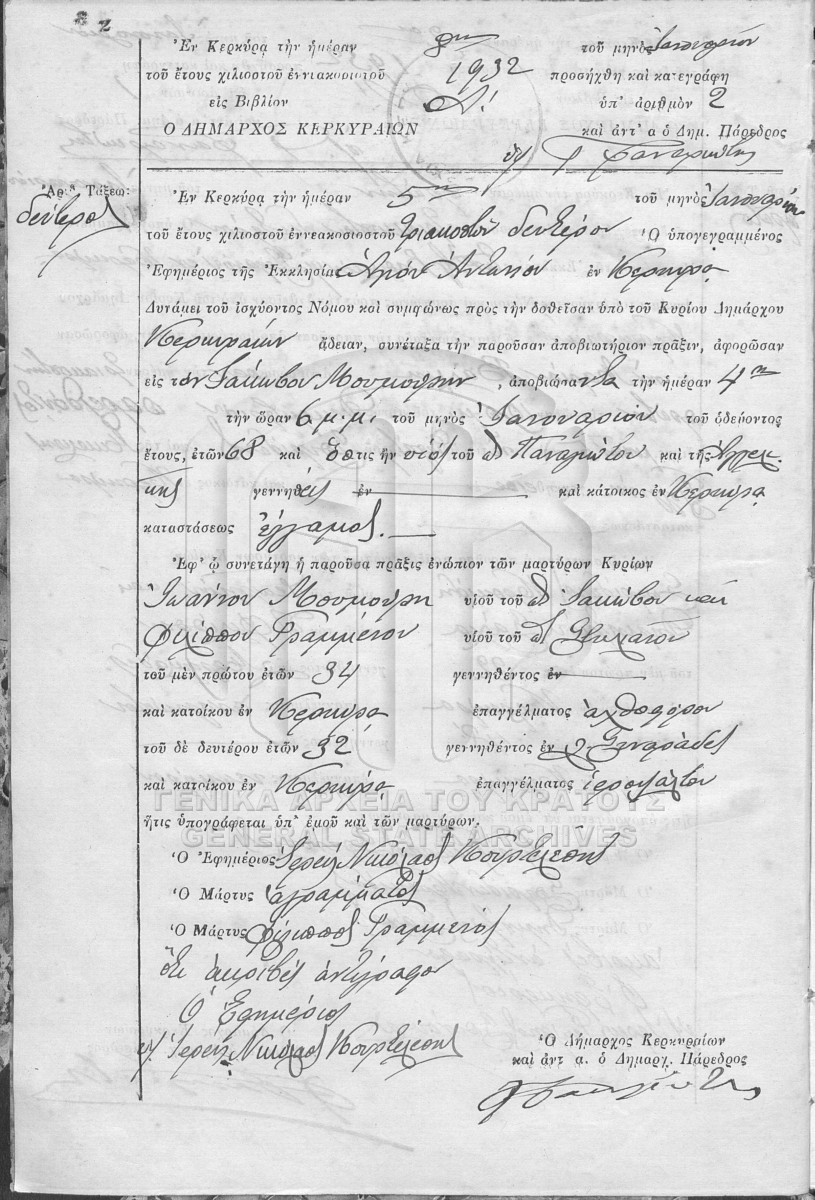 82
Ἐν Κερκύρᾳ τὴν ἡμέραν 8ην τοῦ μηνὸς Ἰανουαρίου
τοῦ ἔτους χιλιοστοῦ ἐννιακοσιοστοῦ 1932 προσήχθη καὶ κατεγράφη
εἰς Βιβλίον Α! ὑπ' ἀριθμὸν 2
Ο ΔΗΜΑΡΧΟΣ ΚΕΡΚΥΡΑΙΩΝ καὶ ἀντ' α ὁ Δημ. Πάρεδρος
Ἀριθ. Τάξεως
δεύτερος
Ἐν Κερκύρᾳ τὴν ἡμέραν 5ην τοῦ μηνὸς Ἰανουαρίου
τοῦ ἔτους χιλιοστοῦ ἐννεακοσιοστοῦ τριακοστοῦ δευτέρου Ὁ ὑπογεγραμμένος
Ἐφημέριος τῆς Ἐκκλησίας Ἁγίου Ἀντωνίου ἐν Κερκύρᾳ
Δυνάμει τοῦ ἰσχύοντος Νόμου καὶ συμφώνως πρὸς τὴν δοθεῖσαν ὑπὸ τοῦ Κυρίου Δημάρχου
Κερκυραίων ἄδειαν, συνέταξα τὴν παροῦσαν ἀποβιωτήριον πρᾶξιν, ἀφορῶσαν
εἰς τὸν Ἰάκωβον Μουμούρην, ἀποβιώσαντα τὴν ἡμέραν 4ην
τὴν ὥραν 6 μ.μ. τοῦ μηνὸς Ἰανουαρίου τοῦ ὁδεύοντος
ἔτους, ἐτῶν 68 καὶ ὅστις ἦν υἱὸς τοῦ Παναγιώτου καὶ τῆς Ἀγγελι
κῆς γεννηθεὶς ἐν καὶ κάτοικος ἐν Κερκύρᾳ
καταστάσεως ἔγγαμος.
Ἐφ' ᾧ συνετάγη ἡ παροῦσα πρᾶξις ἐνώπιον τῶν μαρτύρων Κυρίων
Ἰωάννου Μουμούρη υἱοῦ τοῦ Ἰακώβου καὶ
Φιλίππου Γραμμένου υἱοῦ τοῦ
τοῦ μὲν πρώτου ἐτῶν 34 γεννηθέντος ἐν
καὶ κατοίκου ἐν Κερκύρᾳ ἐπαγγέλματος ἀχθοφόρου
τοῦ δὲ δευτέρου ἐτῶν 32 γεννηθέντος ἐν Σιναράδες
καὶ κατοίκου ἐν Κερκύρᾳ ἐπαγγέλματος ἱεροψάλτου
ΓΕΝΙΚΑ ΑΡΧΕΙΑ ΤΟΥ ΚΡΑΤΟΥΣ
ἥτις ὑπογράφεται ὑπ' ἐμοῦ καὶ τῶν μαρτύρων.
GENERAL STATE ARCHIVES
Ὁ Ἐφημέριος Ἱερεὺς Νικόλαος Κουρτελέσης
Ὁ Μάρτυς ἀγράμματος
Ὁ Μάρτυς Φίλιππος Γραμμένος
Ὅτι ἀκριβὲς ἀντίγραφον
Ὁ Ἐφημέριος
Ἱερεὺς Νικόλαος Κουρτελέσης
Ὁ Δήμαρχος Κερκυραίων
καὶ ἀντ α. ὁ Δημαρχ. Πάρεδρος